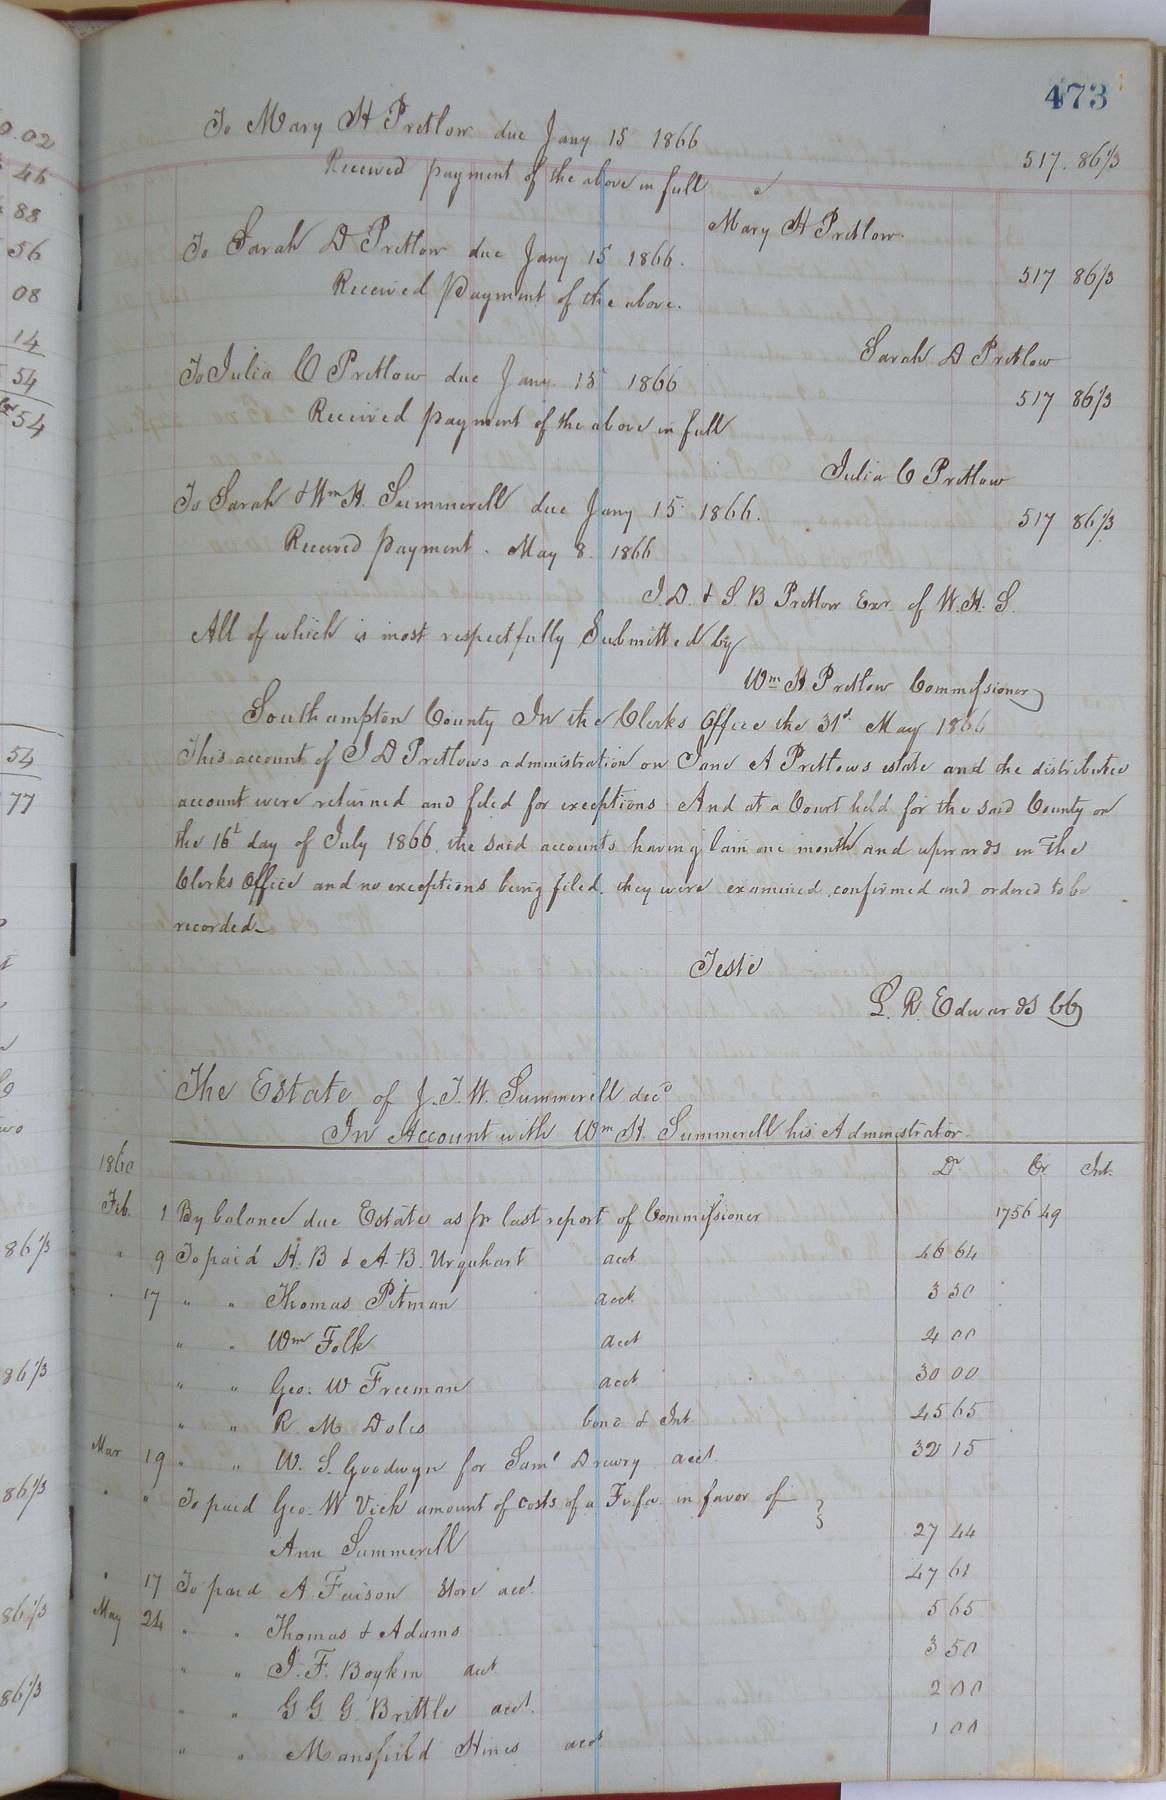 473
To Mary H Pretlow due Jany 15 1866 517. 86⅓
Received payment of the above in full
Mary H Pretlow.
To Sarah D Pretlow due Jany 15 1866. 517 86⅓
Received payment of the above.
Sarah D Pretlow
To Julia C Pretlow due Jany. 15 1866 517 86⅓
Received payment of the above in full
Julia C Pretlow
To Sarah & Wm H. Summerell due Jany 15 1866. 517 86⅓
Received payment. May 8. 1866
J. D. & S. B Pretlow Exr. of W. H. S.
All of which is most respectfully Submitted by
Wm H Pretlow Commissioner
Southampton County In the Clerks Office the 31st May 1866
This account of J D Pretlows administration on Jane A Pretlows estate and the distributee
account were returned and filed for exceptions. And at a Court held for the said County on
the 16t day of July 1866. the said accounts having lain one month and upwards in the
Clerks Office and no exceptions being filed. they were examined confirmed and ordered to be
recorded.
Teste
L. R. Edwards CC
The Estate of J. T. W. Summerell decd
In Account with Wm H. Summerell his Administrator
1860 Dr Cr Int.
Feb. 1 By balance due Estate as pr last report of Commissioner 1756 49
" 9 To paid H. B & A. B. Urquhart acct 46 64
" 17 " " Thomas Pitman acct 3 50
" " Wm Folk acct 4 00
" " Geo. W Freeman acct 30 00
" " R. M Doles bond & Int 45 65
Mar 19 " " W. S. Goodwyn for Saml Drewry acct. 32 15
" " To paid Geo. W Vick amount of costs of a Fi. fa. in favor of
Ann Summerell 27 44
" 17 To paid A. Faison store acct 47 61
May 24 " " Thomas & Adams 5 65
" " J. F. Boykin acct 3 50
" " G G. G. Brittle acct. 2 00
" " Mansfield Hines acct 1 00
0.02
46
88
56
08
14
54
54
54
77
86⅓
86⅓
86⅓
86⅓
86⅓